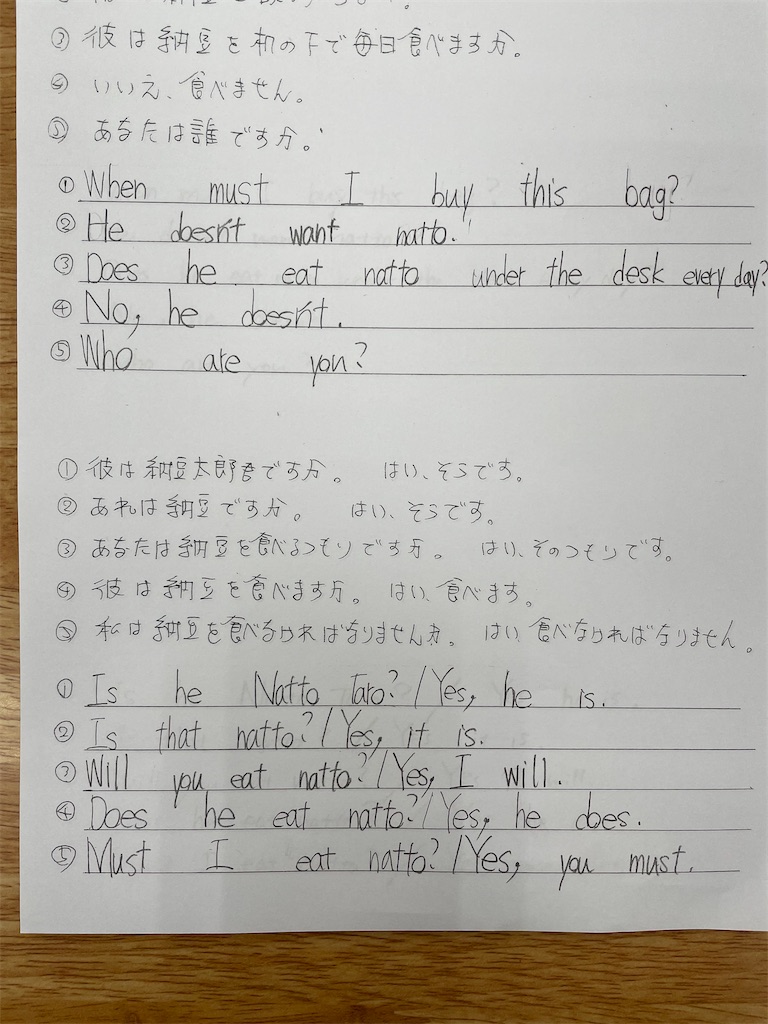 ③ 彼は納豆を机の下で毎日食べますか。
④ いいえ、食べません。
⑤ あなたは誰ですか。
① When must I buy this bag?
② He doesn't want natto.
③ Does he eat natto under the desk every day?
④ No, he doesn't.
⑤ Who are you?
① 彼は納豆太郎君ですか。 はい、そうです。
② あれは納豆ですか。 はい、そうです。
③ あなたは納豆を食べるつもりですか。 はい、そのつもりです。
④ 彼は納豆を食べますか。 はい、食べます。
⑤ 私は納豆を食べなければなりませんか。 はい、食べなければなりません。
① Is he Natto Taro? / Yes, he is.
② Is that natto? / Yes, it is.
③ Will you eat natto? / Yes, I will.
④ Does he eat natto? / Yes, he does.
⑤ Must I eat natto? / Yes, you must.